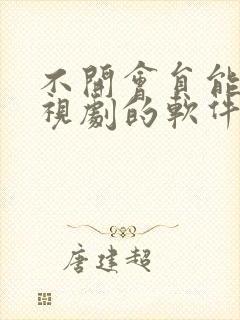 不開會員能
視劇的軟件
唐建超